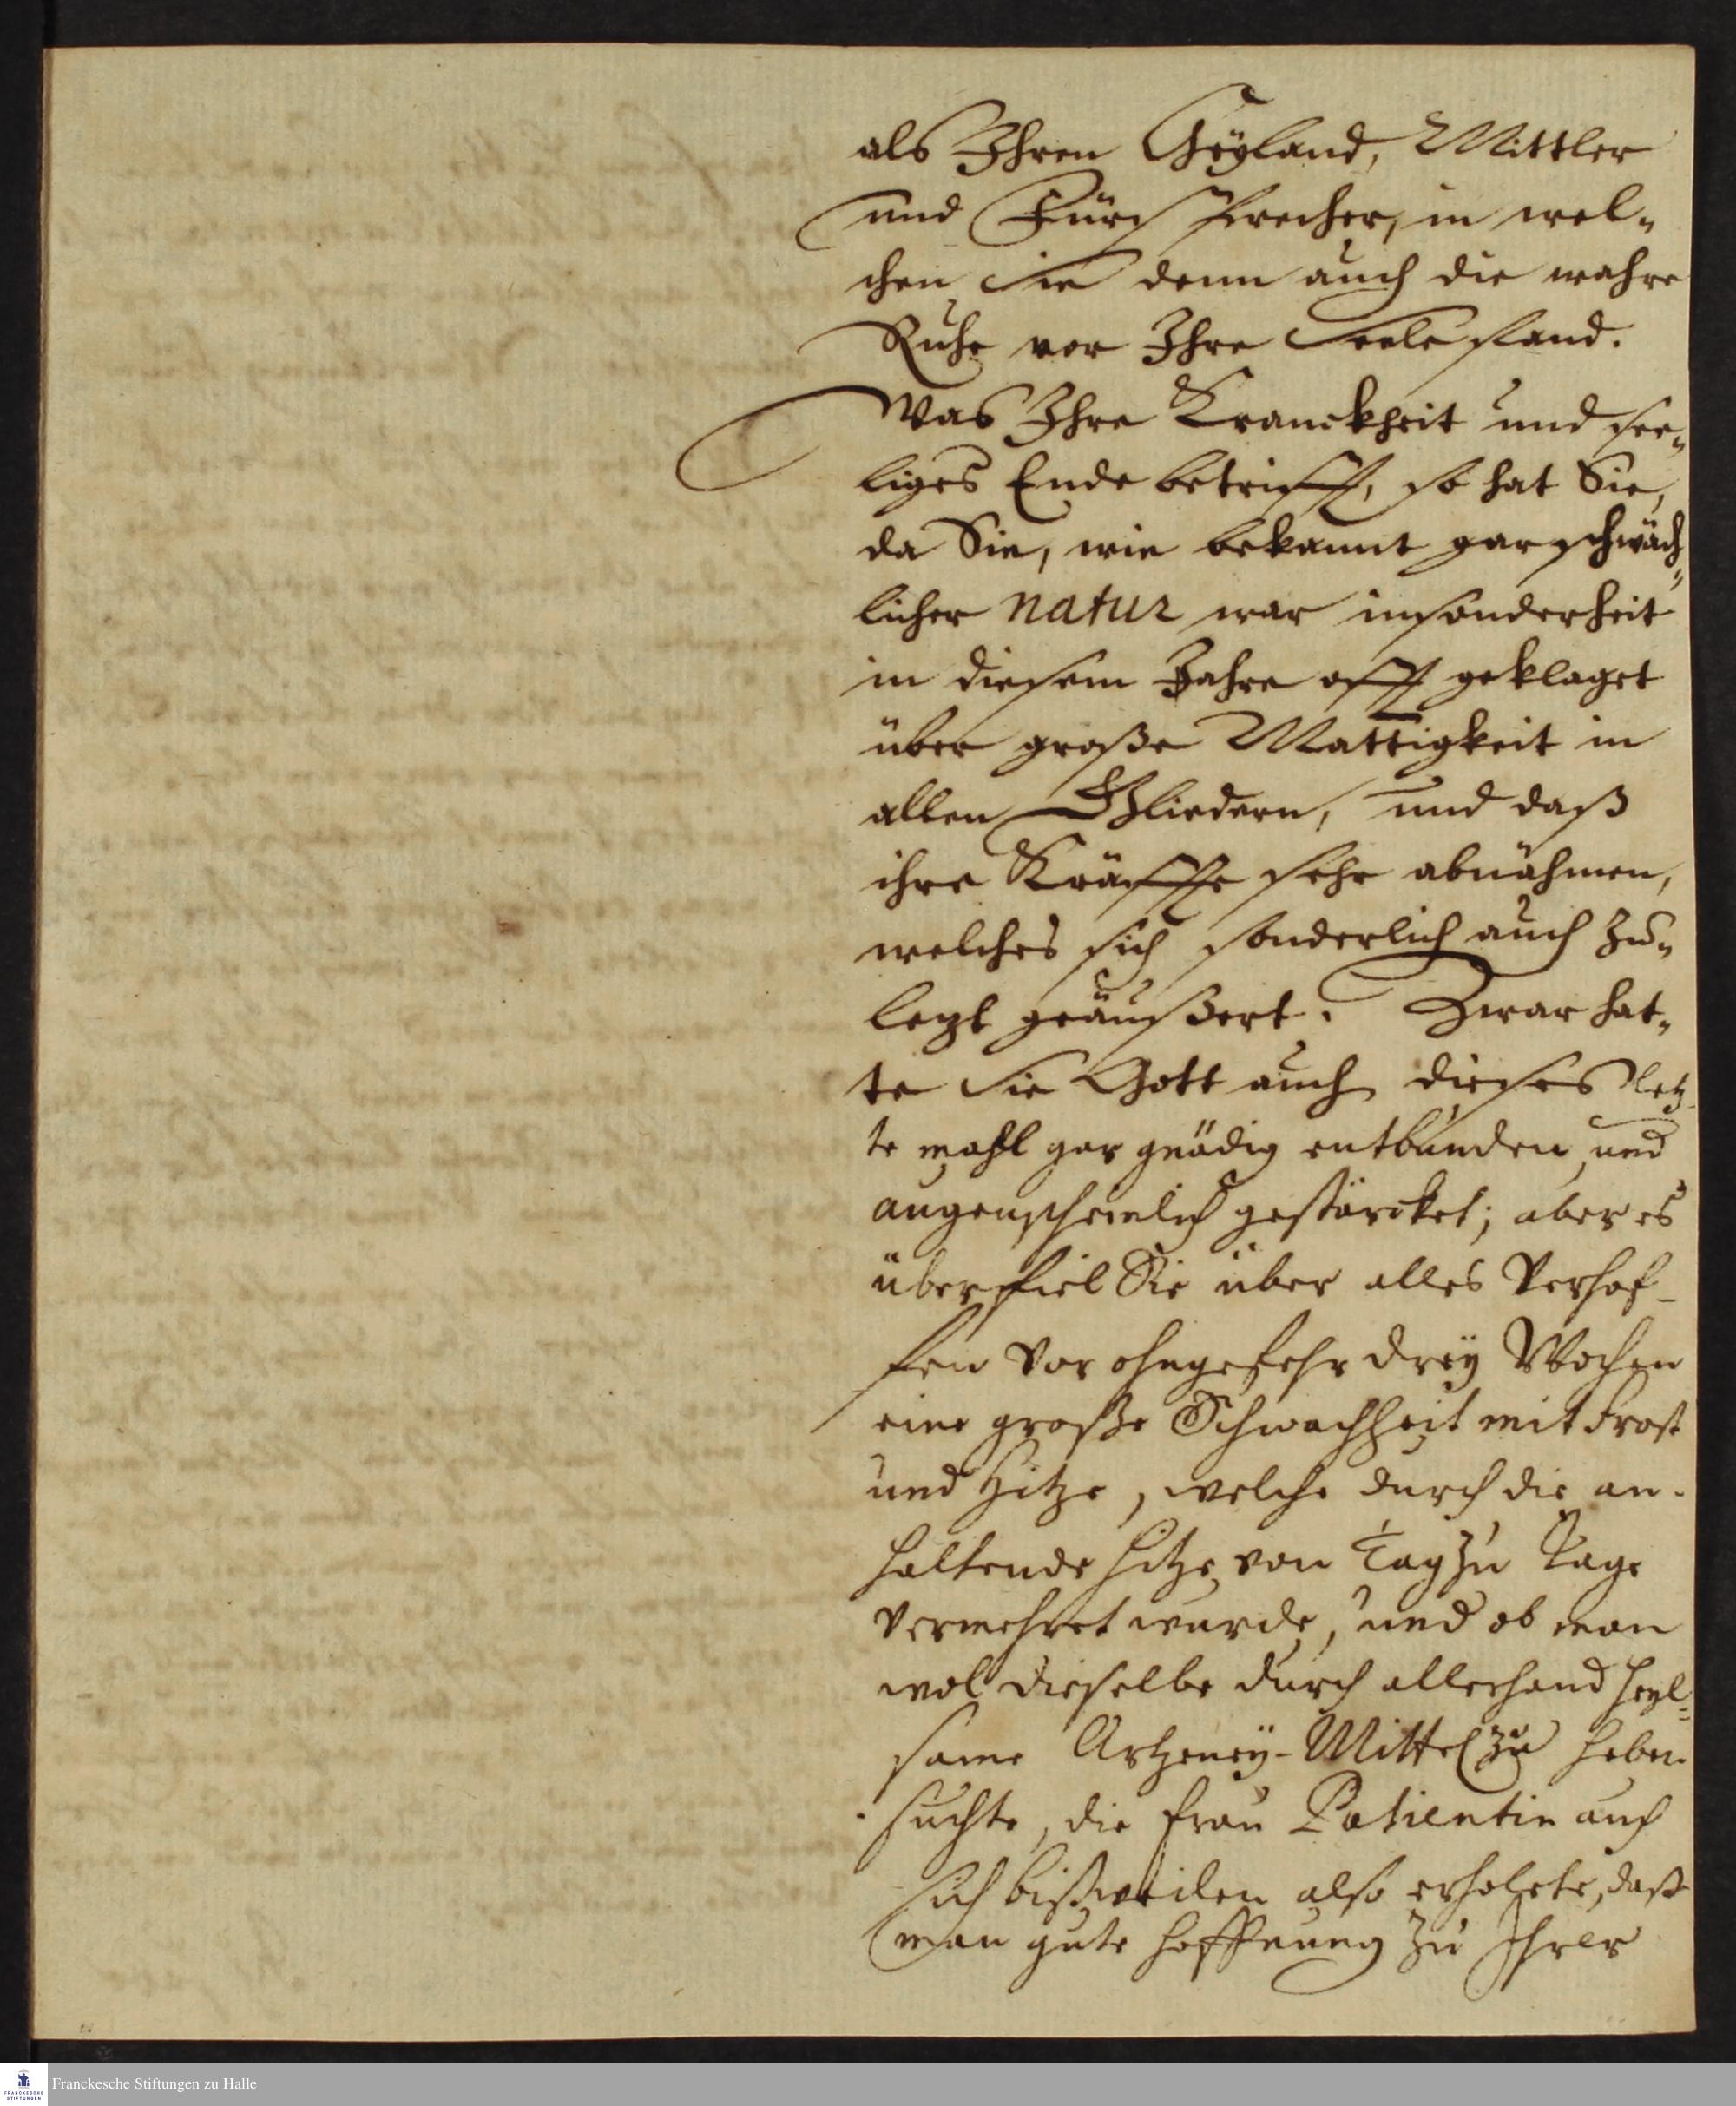 als Ihren Heÿland, Mittler
und Fürsprecher, in wel-
chen sie denn auch die wahre
Ruhe vor Ihre Seele fand.
Was Ihre Kranckheit und see-
liges Ende betrifft, so hat Sie,
da Sie, wie bekannt gar schwäch-
licher natur war insonderheit
in diesem Jahre offt geklaget
über große Mattigkeit in
allen Gliedern, und daß
ihre Kräffte sehr abnähmen,
welches sich sonderlich auch zu-
letzt geäußert. Zwar hat-
te sie Gott auch dieses letz-
te mahl gar gnädig entbunden, und
augenscheinlich gestärcket; aber es
überfiel Sie über alles Verhof-
fen vor ohngefehr dreÿ Wochen
eine große Schwachheit mit Frost
und Hitze, welche durch die an-
haltende Hitze von Tag zu Tage
vermehret wurde, und ob man
wol dieselbe durch allerhand heyl-
same Artzeneÿ-Mittel zu heben
suchte, die Frau Patientin auch
sich bißweilen also erholete, daß
man gute Hoffnung zu Ihrer
Franckesche Stiftungen zu Halle
FRANCKESCHE STIFTUNGEN